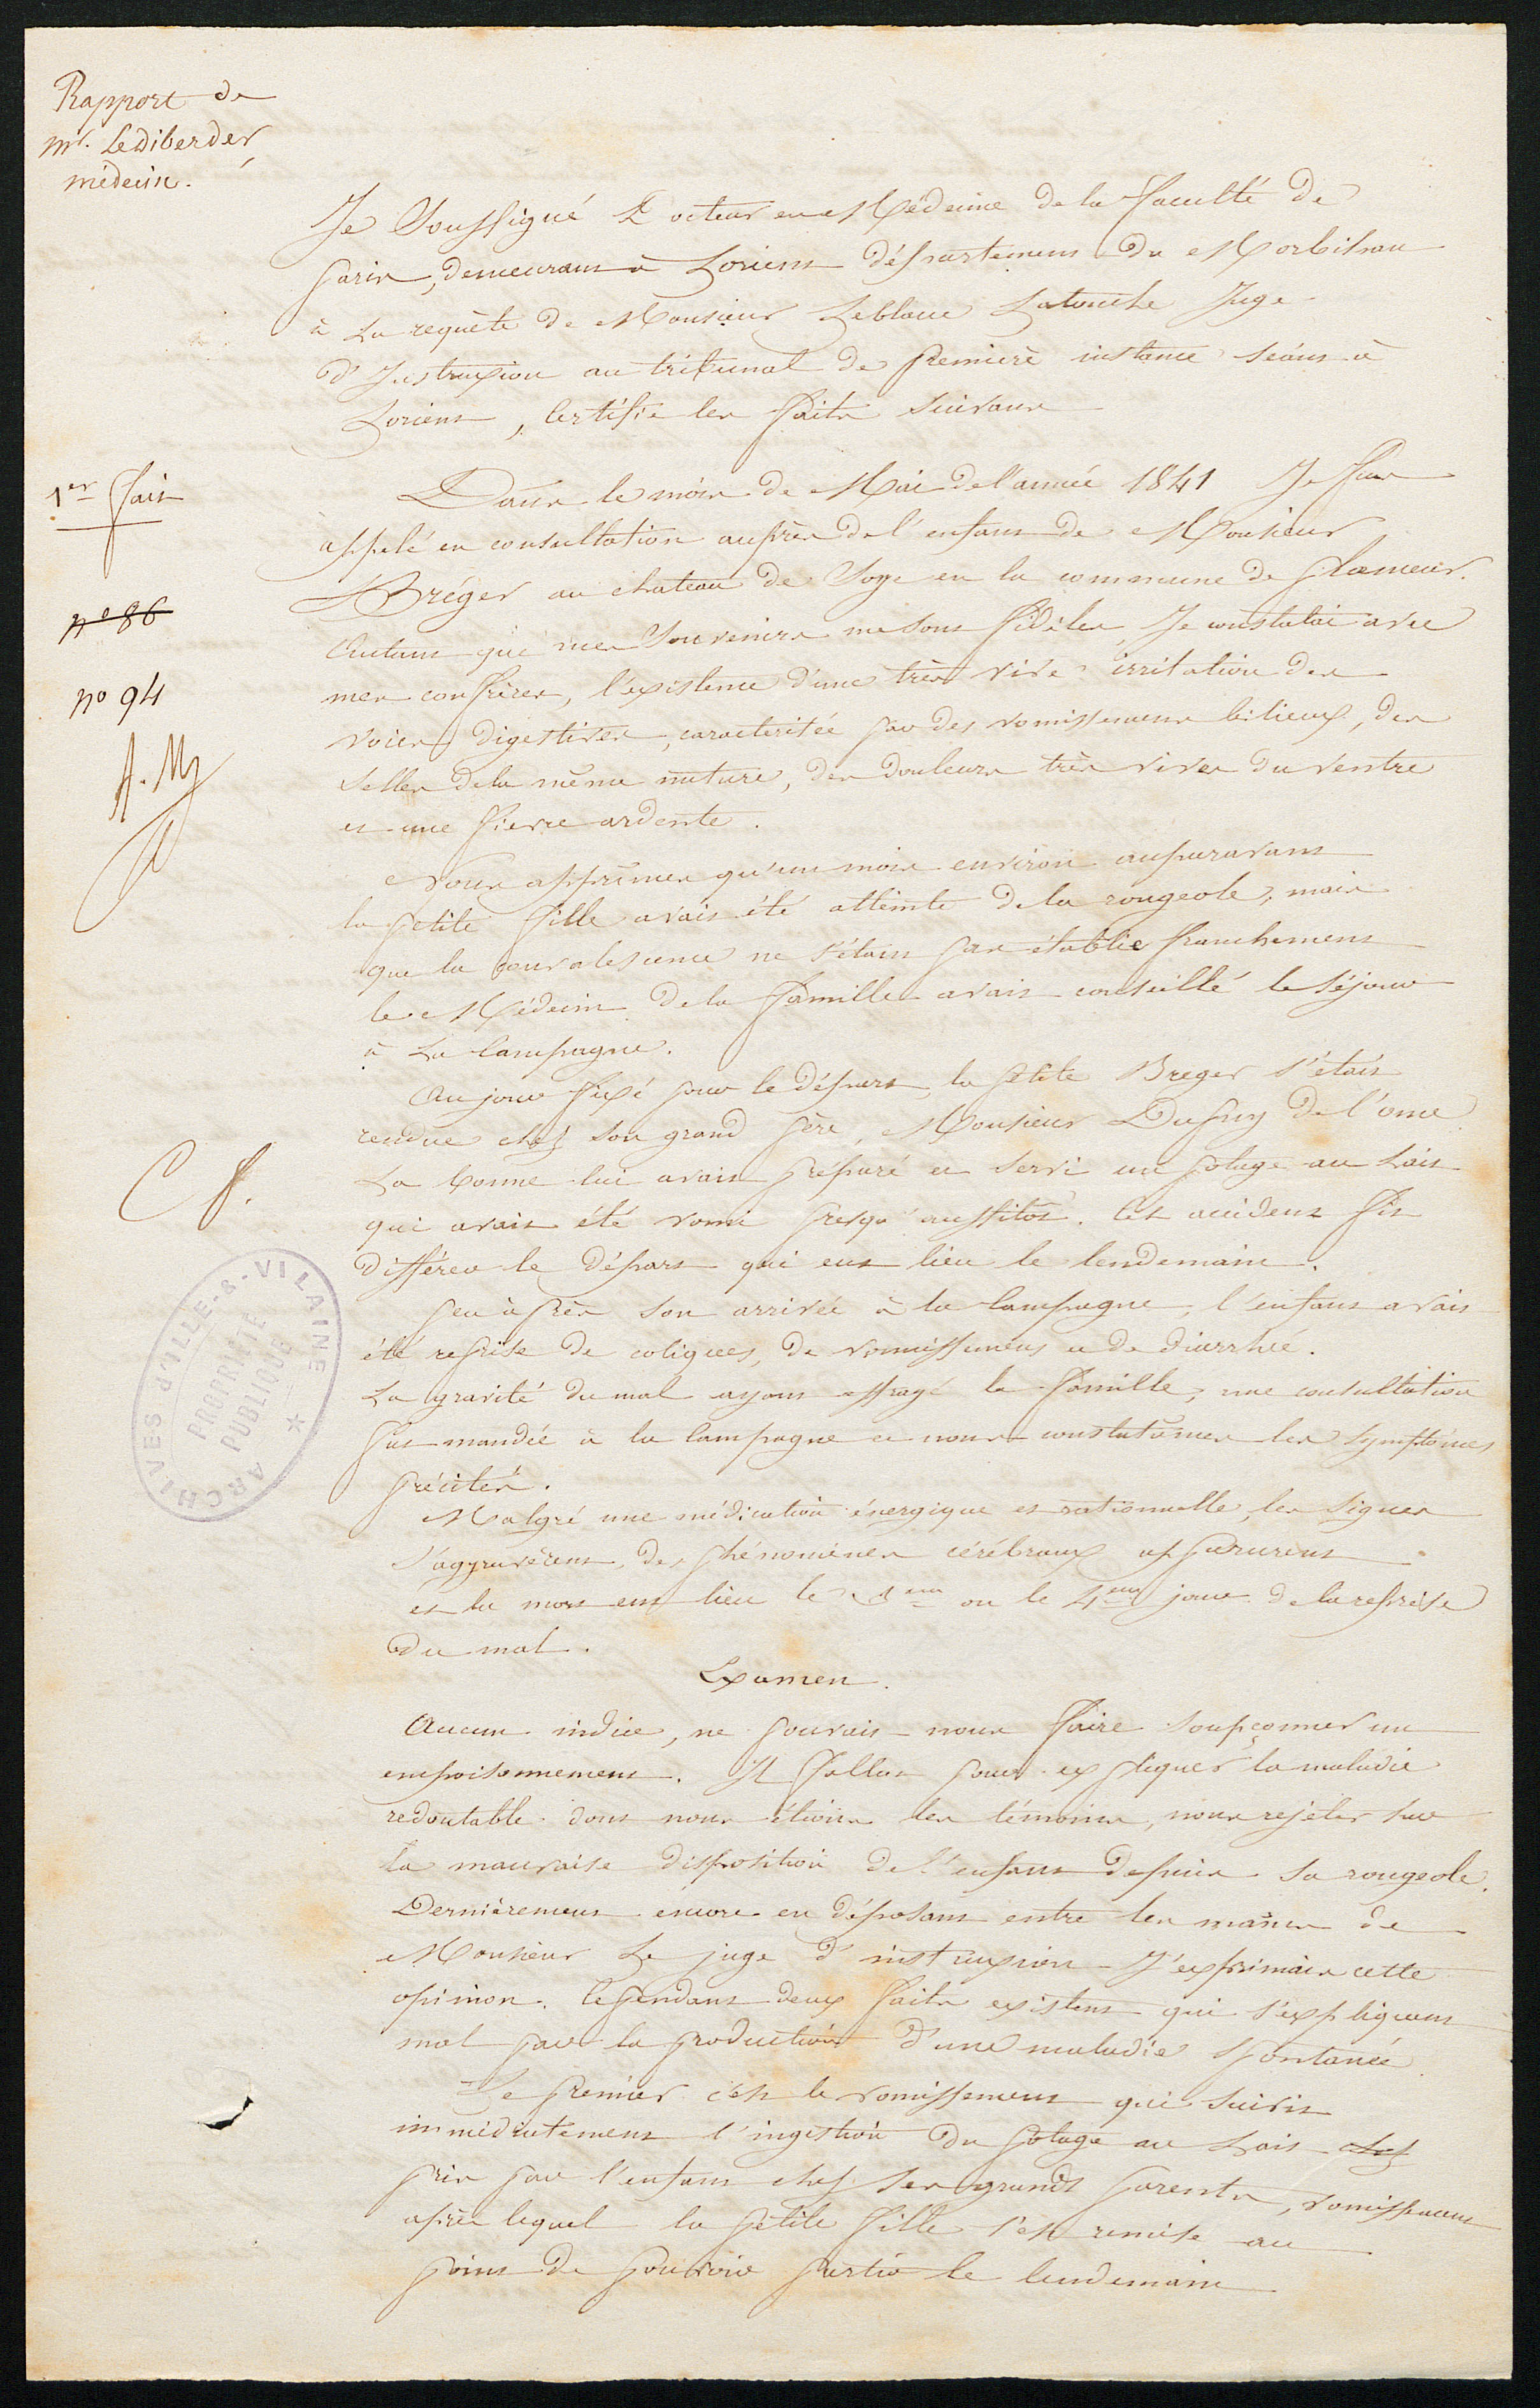 Rapport de
mr. Lediberder,
médecin.
Je Soussigné Docteur en Médecine de la faculté de
paris, demeurant à Lorient département du Morbihan
à La requête de Monsieur Leblanc Latouche Juge
d'Instruxion au tribunal de première instance séant à
Lorient, certifie les faits suivants
1er fait
Dans le mois de Mai de l'année 1841 Je fus
appelé en consultation auprès de l'enfant de Monsieur
Bréger au chateau de Soye en la commune de ploemeur.
no 86
Autant que mes Souvenirs me sont fidèles, Je constatai avec
mes confrères, l'existence d'une très vive irritation des
no 94
voies digestives, caracterisée par des vomissements bilieux, des
selles de la même nature, des douleurs très vives du ventre
A. M
et une fièvre ardente.
Nous apprimes qu'un mois environ auparavant
la petite fille avait été atteinte de la rougeole, mais
que la convalescence ne s'étant pas établie franchement
le Médecin de la famille avait conseillé le séjour
à La Campagne.
Au jour fixé pour le départ, la petite Breger s'était
rendue chez son grand père, Monsieur Dupuy de l'ome
La bonne lui avait préparé et servi un potage au Lait
C f.
qui avait été vomi presqu'aussitôt. Cet accident fit
différer le départ qui eut lieu le lendemain.
peu après son arrivée à la Campagne, l'enfant avait
été reprise de coliques, de vomissemens et de diarrhée.
La gravité du mal ayant effrayé la famille, une consultation
fut mandée à la Campagne et nous constatâmes les Symptômes
précités.
ARCHIVES d'ILLE-&-VILAINE *
PROPRIÉTÉ
PUBLIQUE
Malgré une médication énergique et rationnelle, les Signes
s'aggravèrent, des phénomènes cérébraux apparurent
et la mort eut lieu le 3eme ou le 4eme jour de la reprise
du mal.
Examen.
Aucun indice, ne pouvait nous faire soupçonner un
empoisonnement. Il fallut pour expliquer la maladie
redoutable dont nous étions les témoins, nous rejeter sur
la mauvaise disposition de l'enfant depuis sa rougeole.
Dernièrement encore en déposant entre les mains de
Monsieur Le juge d'instruxion J'exprimais cette
opinion. Cependant deux faits existent qui s'expliquent
mal par la production d'une maladie spontanée
Le premier c'est le vomissement qui suivit
immédiatement l'ingestion du potage au Lait
pris par l'enfant chez ses grands parents, vomissement
après lequel la petite fille s'est remise au
point de pouvoir partir le lendemain